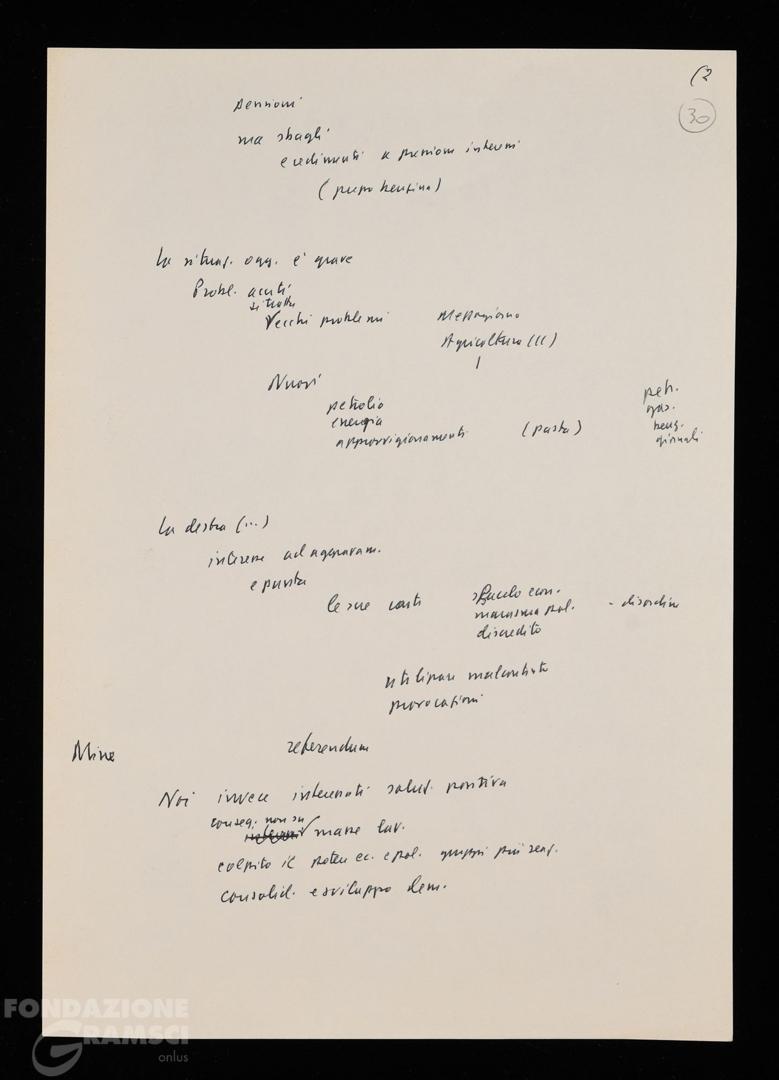 (2
30
pensioni
ma sbagli
e cedimenti a pressioni interni
(prezzo benzina)
La situaz. ogg. è grave
Probl. acuti
si tratta
Vecchi problemi Mezzogiorno
Agricoltura (((
Nuovi
petrolio petr.
energia gas.
approvvigionamenti (pasta) benz.
giornali
La destra (...)
interesse ad aggravam.
e punta
le sue carte sfacelo econ.
marasma pol. - disordine
discredito
utilizzare malcontento
provocazioni
Mire referendum
Noi invece interessati soluz. positiva
conseg. non su
masse lav.
colpito il potere ec. e pol. gruppi più reaz.
consolid. e sviluppo dem.
FONDAZIONE
GRAMSCI
onlus